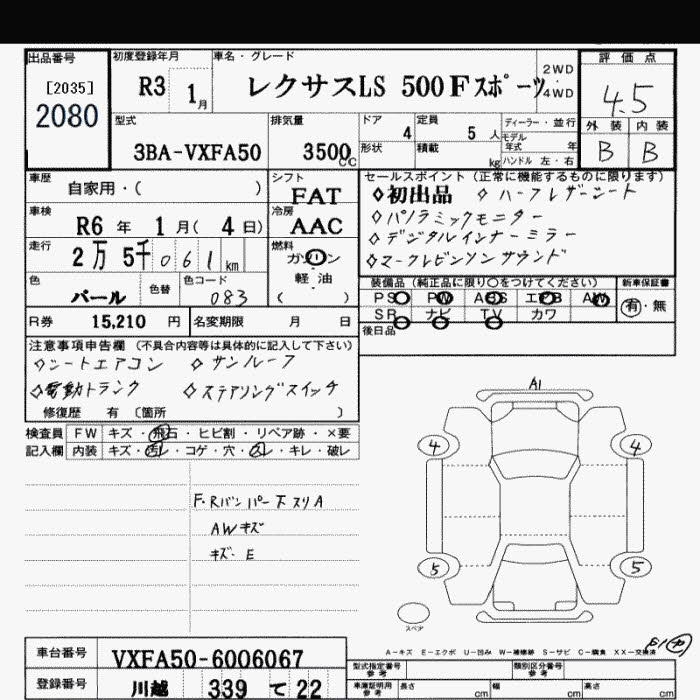 出品番号
[2035]
2080
初度登録年月
R3 1月
車名・グレード
レクサスLS 500Fスポーツ
2WD
・
4WD
評価点
4.5
外装 内装
B B
型式
3BA-VXFA50
排気量
3500cc
ドア 4
定員 5 人
形状
積載 kg
ディーラー・並行
モデル年式 年
ハンドル 左・右
車歴 自家用・( )
シフト FAT
車検 R6 年 1 月( 4 日)
冷房 AAC
走行 2万 5千 061 km
燃料 ガソリン
軽油
( )
色 パール
色替
色コード 083
セールスポイント (正常に機能するものに限ります)
◇初出品 ◇ハーフレザーシート
◇パノラミックモニター
◇デジタルインナーミラー
◇マークレビンソンサウンド
装備品 (純正品に限り○をつけてください)
新車保証書
PS PW ABS エアB AW
有・無
SR ナビ TV カワ
後日品
R券 15,210 円
名変期限 月 日
注意事項申告欄 (不具合内容等は具体的に記入して下さい)
◇シートエアコン ◇サンルーフ
◇電動トランク ◇ステアリングスイッチ
修復歴 有 〔箇所 〕
検査員 FW キズ・飛石・ヒビ割・リペア跡・×要
記入欄 内装 キズ・汚レ・コゲ・穴・スレ・キレ・破レ
F・Rバンパー下スリA
AWキズ
キズ・E
A1
4 4
5 5
スペア
A-キズ E-エクボ U-凹み W-補修跡 S-サビ C-腐食 XX-交換済
車台番号 VXFA50-6006067
登録番号 川越 339 て 22
型式指定番号
参考
類別区分番号
参考
車庫証明用
参考
長さ cm 幅 cm 高さ cm